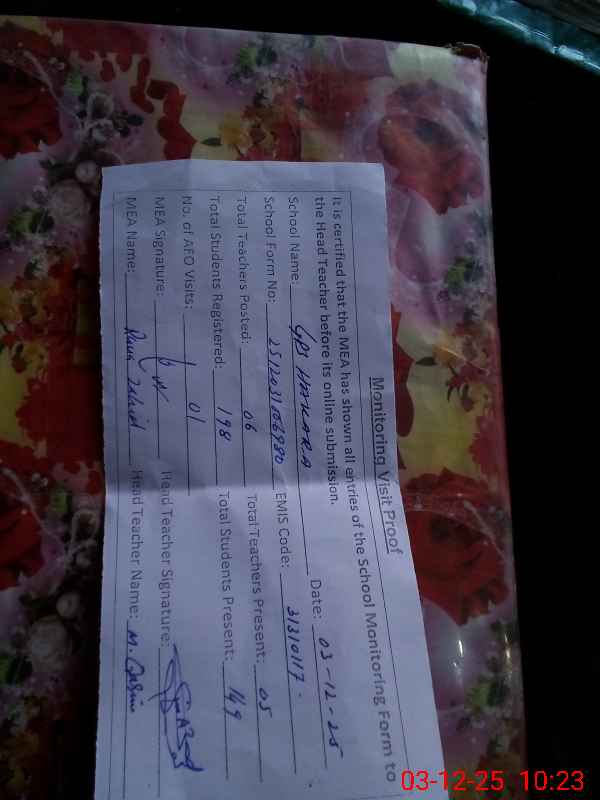 Monitoring Visit Proof
It is certified that the MEA has shown all entries of the School Monitoring Form to
the Head Teacher before its online submission.
School Name: GPS HAKARA Date: 03-12-25
School Form No: 2512031006980 EMIS Code: 31310117
Total Teachers Posted: 06 Total Teachers Present: 05
Total Students Registered: 198 Total Students Present: 149
No. of AEO Visits: 01
MEA Signature: Head Teacher Signature:
MEA Name: Zahid Head Teacher Name: M. Qasim
03-12-25 10:23